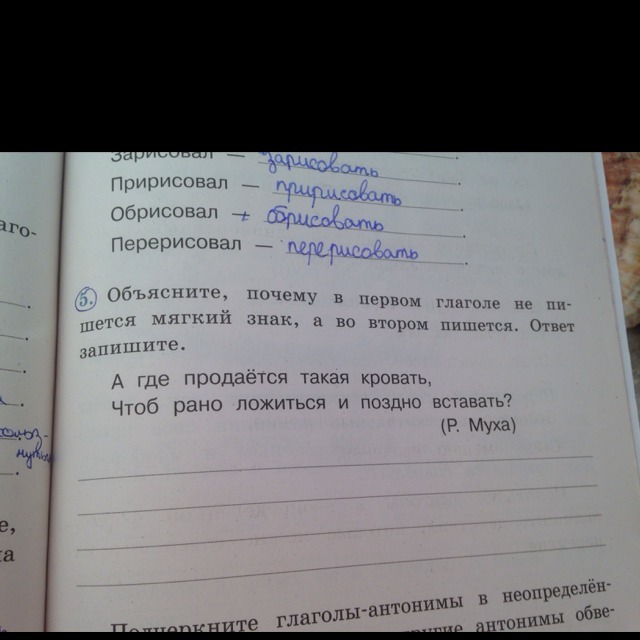 Зарисовал — зарисовать.
Пририсовал — пририсовать.
Обрисовал — обрисовать.
Перерисовал — перерисовать.
аго-
5. Объясните, почему в первом глаголе не пи-
шется мягкий знак, а во втором пишется. Ответ
запишите.
А где продаётся такая кровать,
Чтоб рано ложиться и поздно вставать?
(Р. Муха)
е,
а
Подчеркните глаголы-антонимы в неопределён-
другие антонимы обве-